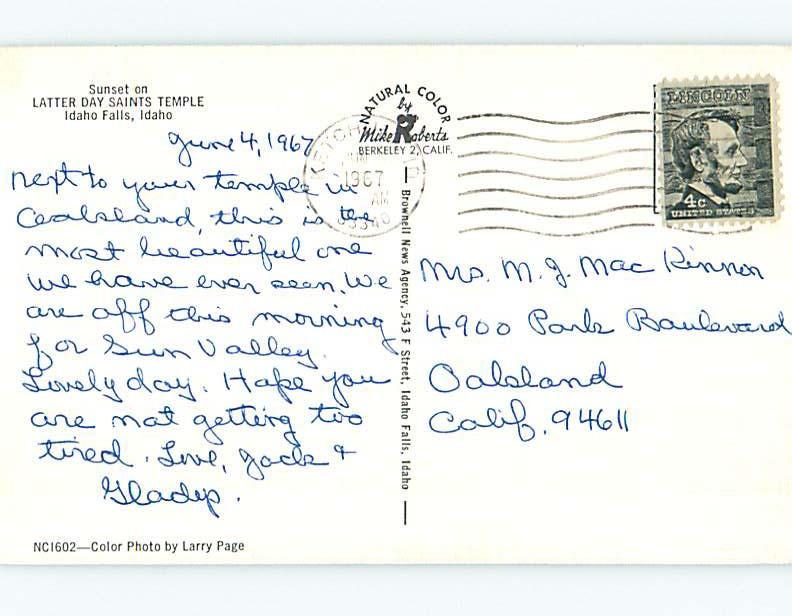 Sunset on
LATTER DAY SAINTS TEMPLE
Idaho Falls, Idaho
June 4, 1967
Next to your temple in
Oakland, this is the
most beautiful one
we have ever seen. We
are off this morning
for Sun Valley.
Lovely day. Hope you
are not getting too
tired. Love, Jack &
Gladys.
NC1602—Color Photo by Larry Page
NATURAL COLOR
by
Mike Roberts
BERKELEY 2, CALIF.
1967
AM
Brownell News Agency, 543 F Street, Idaho Falls, Idaho
LINCOLN
4c
UNITED STATES
Mrs. M. J. Mac Kinnon
4900 Park Boulevard
Oakland
Calif. 94611